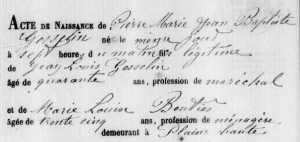 ACTE DE NAISSANCE de Pierre Marie Jean Baptiste
Gosselin né le même jour
à sept heures du matin fils légitime
de Jean Louis Gosselin
âgé de quarante ans, profession de maréchal
et de Marie Louise Boutier
âgée de trente cinq ans, profession de ménagère
demeurant à Plaine haute